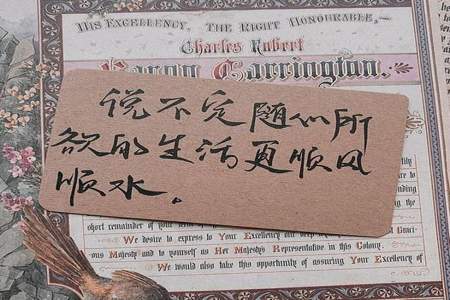 His Excellency, The Right Honourable,
Charles Robert
Baron Carrington.
说不定随心所
欲的生活更顺风
顺水。
short remainder of
We desire to express to Your Excellency our deep
Majesty and to yourself as Her Majesty's Representative in this Colony.
We would also take this opportunity of assuring Your Excellency of